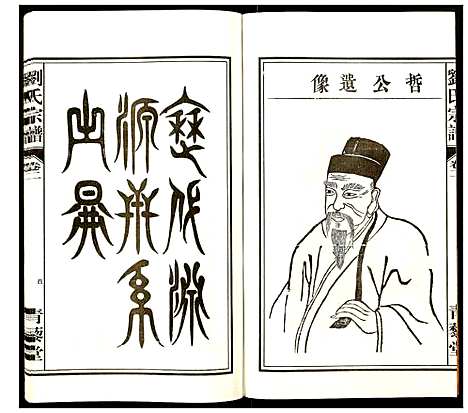 劉氏宗譜
卷二
青藜堂
哲公遺像
代淵
源
系
劉氏宗譜
卷二
青藜堂